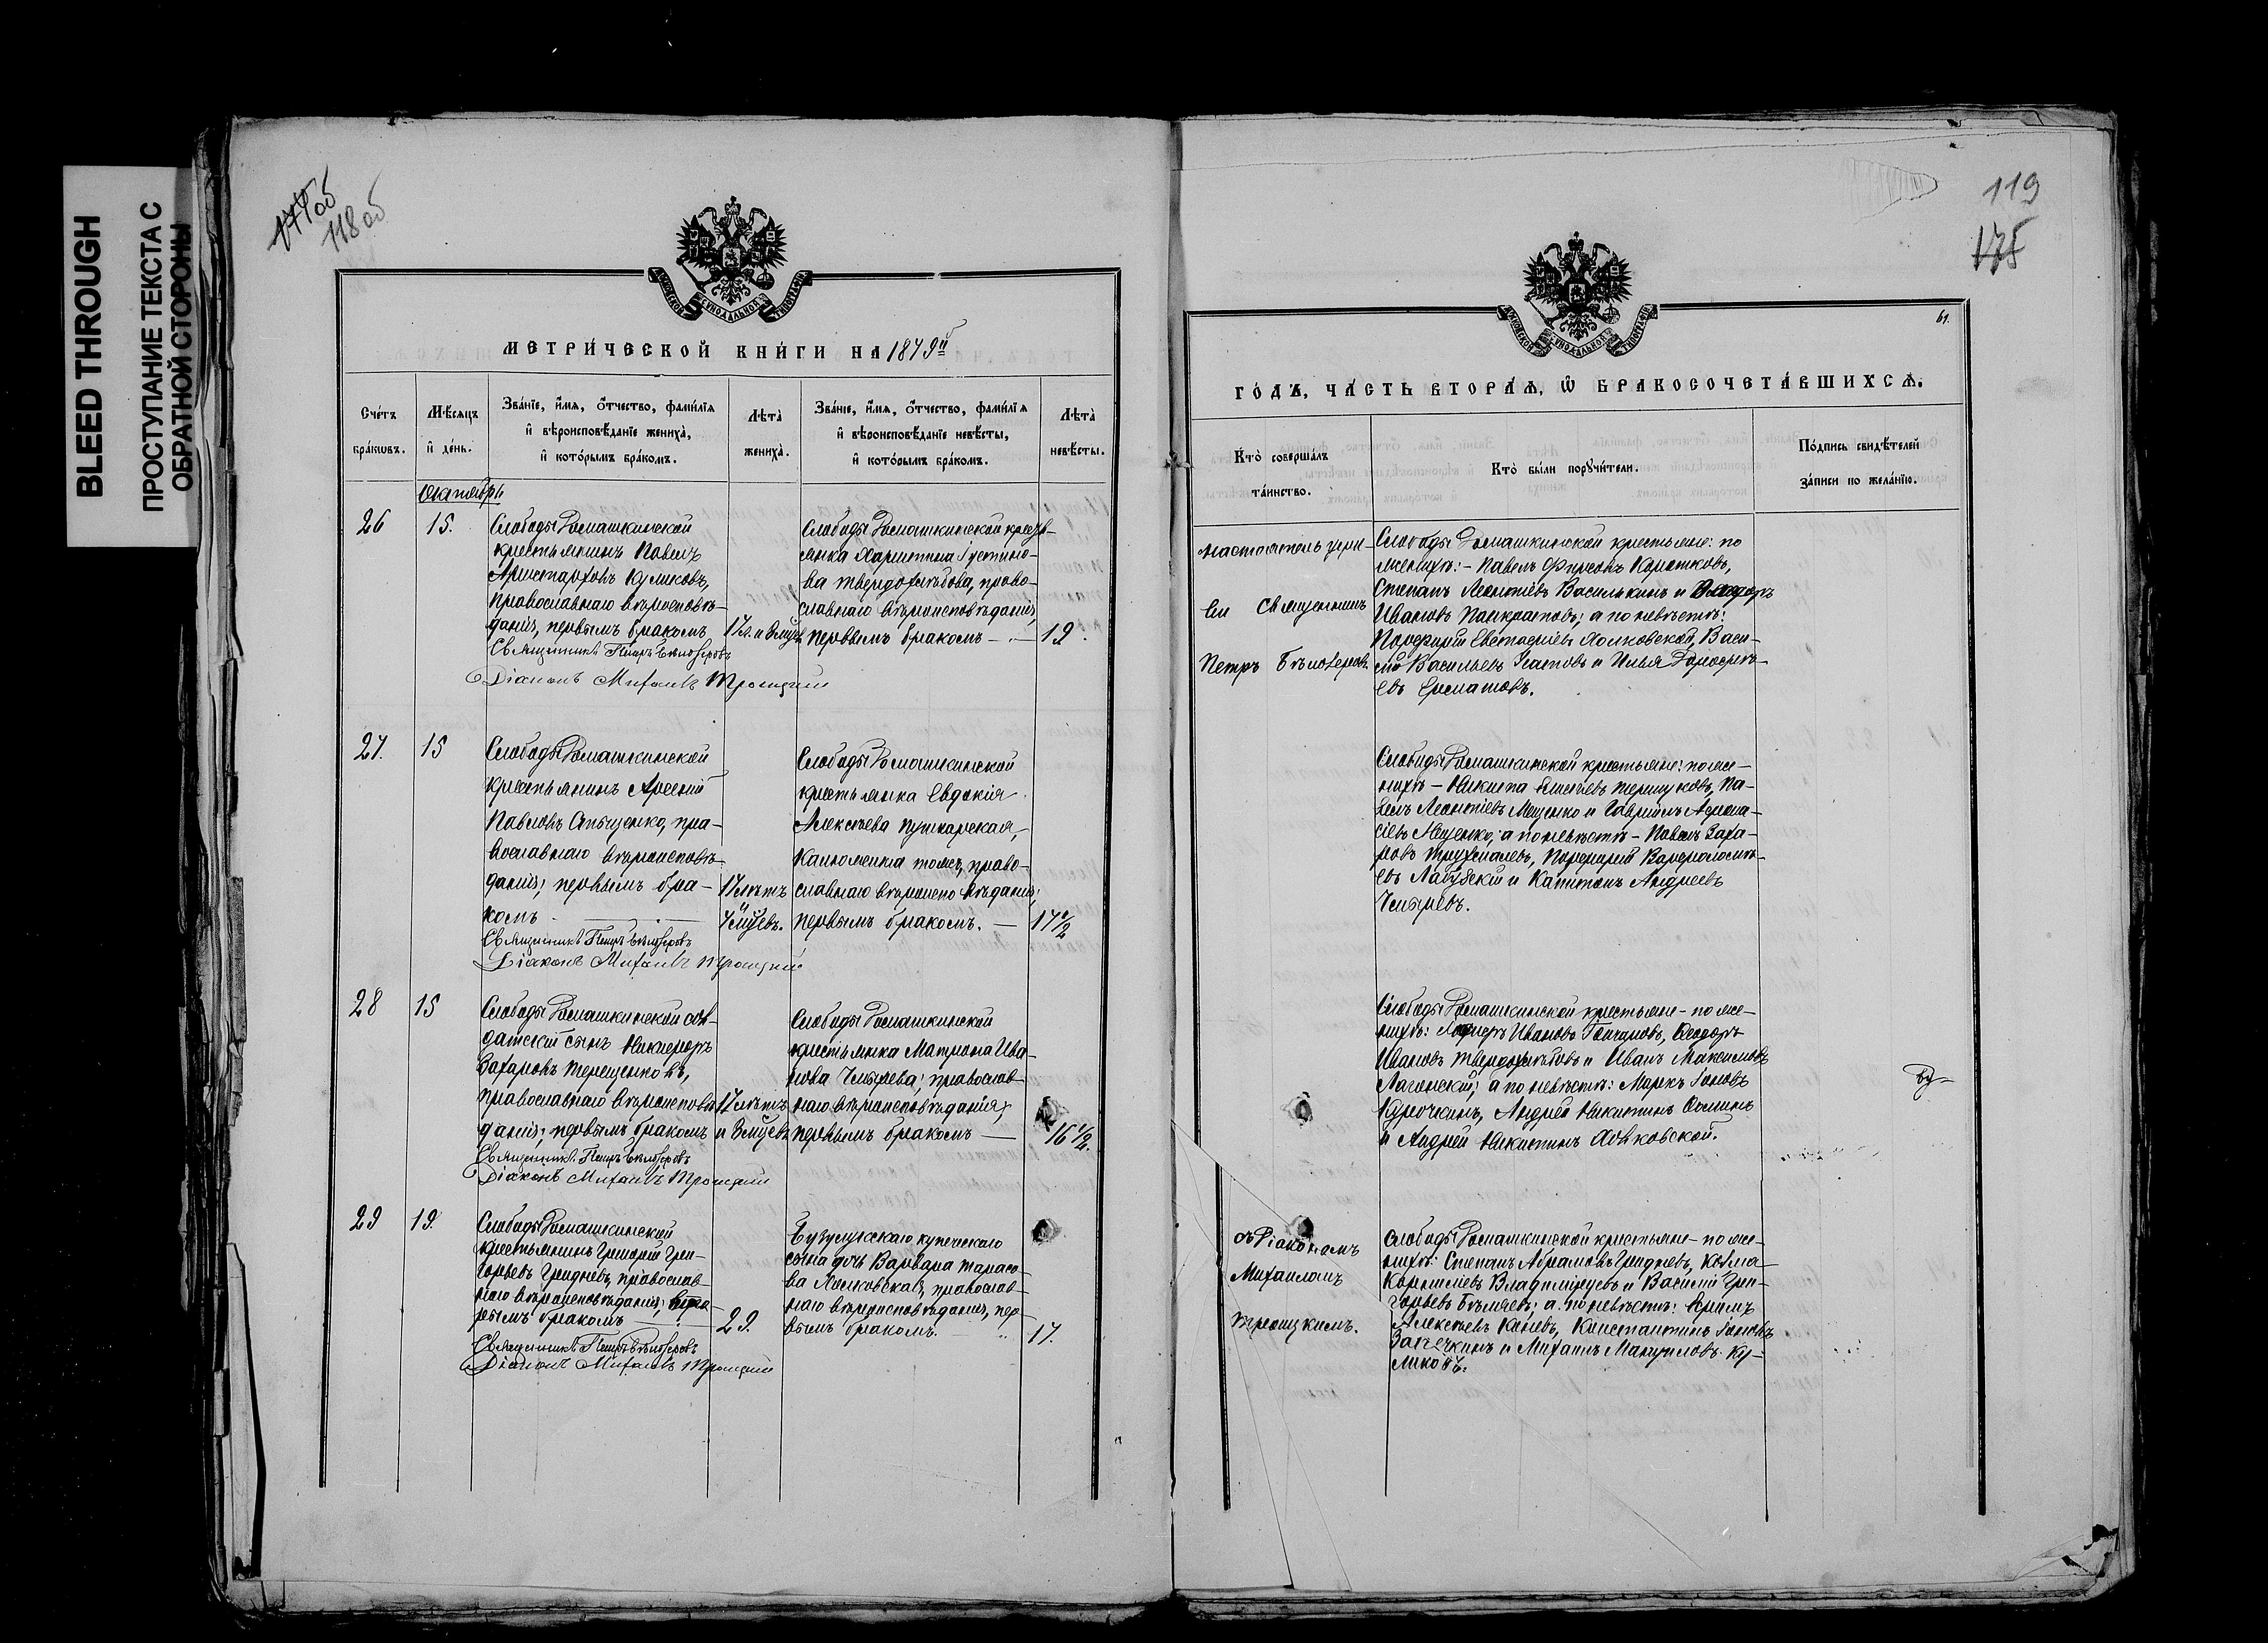 BLEED THROUGH
ПРОСТУПАНИЕ ТЕКСТА С
ОБРАТНОЙ СТОРОНЫ
118 об
МЕТРИ́ЧЕСКОЙ КНИ́ГИ НА 1879й
Сче́тъ
бра́кωвъ.
Мѣ́сяцъ
и҆ де́нь.
Зва́нїе, и҆́мя, ѻ҆́тчество, фами́лїя
и҆ вѣроисповѣ́данїе жениха̀,
и҆ кото́рымъ бра́комъ.
Лѣ́та
жениха̀.
Зва́нїе, и҆́мя, ѻ҆́тчество, фами́лїя
и҆ вѣроисповѣ́данїе невѣ́сты,
и҆ кото́рымъ бра́комъ.
Лѣ́та
невѣ́сты.
Октябрь
26
15.
Слободы Ромашкинской
крестьянинъ Павелъ
Аристарховъ Куликовъ,
православнаго вѣроисповѣ-
данія, первымъ бракомъ
Священникъ Петръ Бѣлозеровъ
Діаконъ Михаилъ Троицкій
Слободы Ромашкинской кресть-
янка Харитина Іустино-
ва Твердохлѣбова, право-
славнаго вѣроисповѣданія,
первымъ бракомъ —
19.
27.
15
Слободы Ромашкинской
крестьянинъ Арсеній
Павловъ Спыценко, пра-
вославнаго вѣроисповѣ-
данія; первымъ бра-
комъ
17 лѣтъ
и
7 мцевъ.
Священникъ Петръ Бѣлозеровъ
Діаконъ Михаилъ Троицкій
Слободы Ромашкинской
крестьянка Евдокія
Алексѣева Пушкарская,
православнаго вѣроисповѣданія;
первымъ бракомъ. —
17 1/2
28
15
Слободы Ромашкинской сол-
датскій сынъ Никифоръ
Захаровъ Терещенковъ,
православнаго вѣроисповѣ-
данія; первымъ бракомъ
17 лѣтъ
Священникъ Петръ Бѣлозеровъ
Діаконъ Михаилъ Троицкій
Слободы Ромашкинской
крестьянка Матрона Ива-
нова Чмырева; православ-
наго вѣроисповѣданія,
первымъ бракомъ —
16 1/2.
29
19.
Слободы Ромашкинской
крестьянинъ Григорій Гри-
горьевъ Гридневъ, православ-
наго вѣроисповѣданія; вто-
рымъ бракомъ
29.
Священникъ Петръ Бѣлозеровъ
Діаконъ Михаилъ Троицкій
Бузулукскаго купеческаго
сына дочь Варвара Тарасо-
ва православ-
наго вѣроисповѣданія, пер-
вымъ бракомъ.
17.
119
175
61.
ГО́ДЪ, ЧА́СТЬ ВТОРА́Ѧ, Ѽ БРАКОСОЧЕТА́ВШИХСѦ.
Кто̀ соверша́лъ
та́инство.
Кто̀ бы́ли поруЧи́тели.
По́дпись свидѣ́телей
за́писи по жела́нїю.
Настоятель церк-
ви Священникъ
Петръ Бѣлозеровъ
Слободы Ромашкинской крестьяне: по
женихѣ: - Павелъ Фирсовъ Коротковъ,
Степанъ Леонтіевъ Василькинъ и Ѳедоръ
Ивановъ Панкратовъ; а по невѣстѣ:
Порфирій Евстафіевъ Холковской, Васи-
лій Васильевъ и Илья Дорофѣ-
евъ Ерматовъ.
Слободы Ромашкинской крестьяне: по же-
нихѣ - Никита Па-
велъ Леонтіевъ Мащенко и Гавріилъ Афана-
сіевъ Мащенко; а по невѣстѣ - Павелъ Заха-
ровъ Трухмалевъ, Порфирій Варфоломѣ-
евъ Лабузскій и Капитонъ Андреевъ
Чмыревъ.
Слободы Ромашкинской крестьяне - по же-
нихѣ: Ивановъ Гончаровъ, Ѳеодоръ
Ивановъ Твердохлѣбовъ и Иванъ Максимовъ
Лагонскій; а по невѣстѣ: Маркъ Іоновъ
Курочкинъ, Андрей Никитинъ Ооминъ
и Андрей Никитинъ
съ Діакономъ
Михаиломъ
Троицкимъ.
Слободы Ромашкинской крестьяне - по же-
нихѣ: Степанъ Абрамовъ Гридневъ, Козма
Корниліевъ Владиміровъ и Василій Гри-
горьевъ Бѣляевъ; а по невѣстѣ:
Алексѣевъ Каневъ, Константинъ Іоновъ
Запечкинъ и Михаилъ Мануиловъ Ку-
ликовъ.